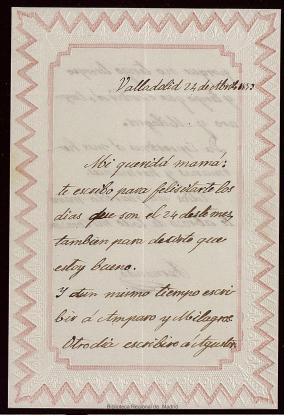 Valladolid 24 de Abril
Mi querida mamá:
te escribo para felicitarte los
dias que son el 24 deste mes,
tambien para decirte que
estoy bueno.
Y aun mismo tiempo escri-
bir á Amparo y Milagros.
Otro dia escribiro á Agustin
Biblioteca Regional de Madrid